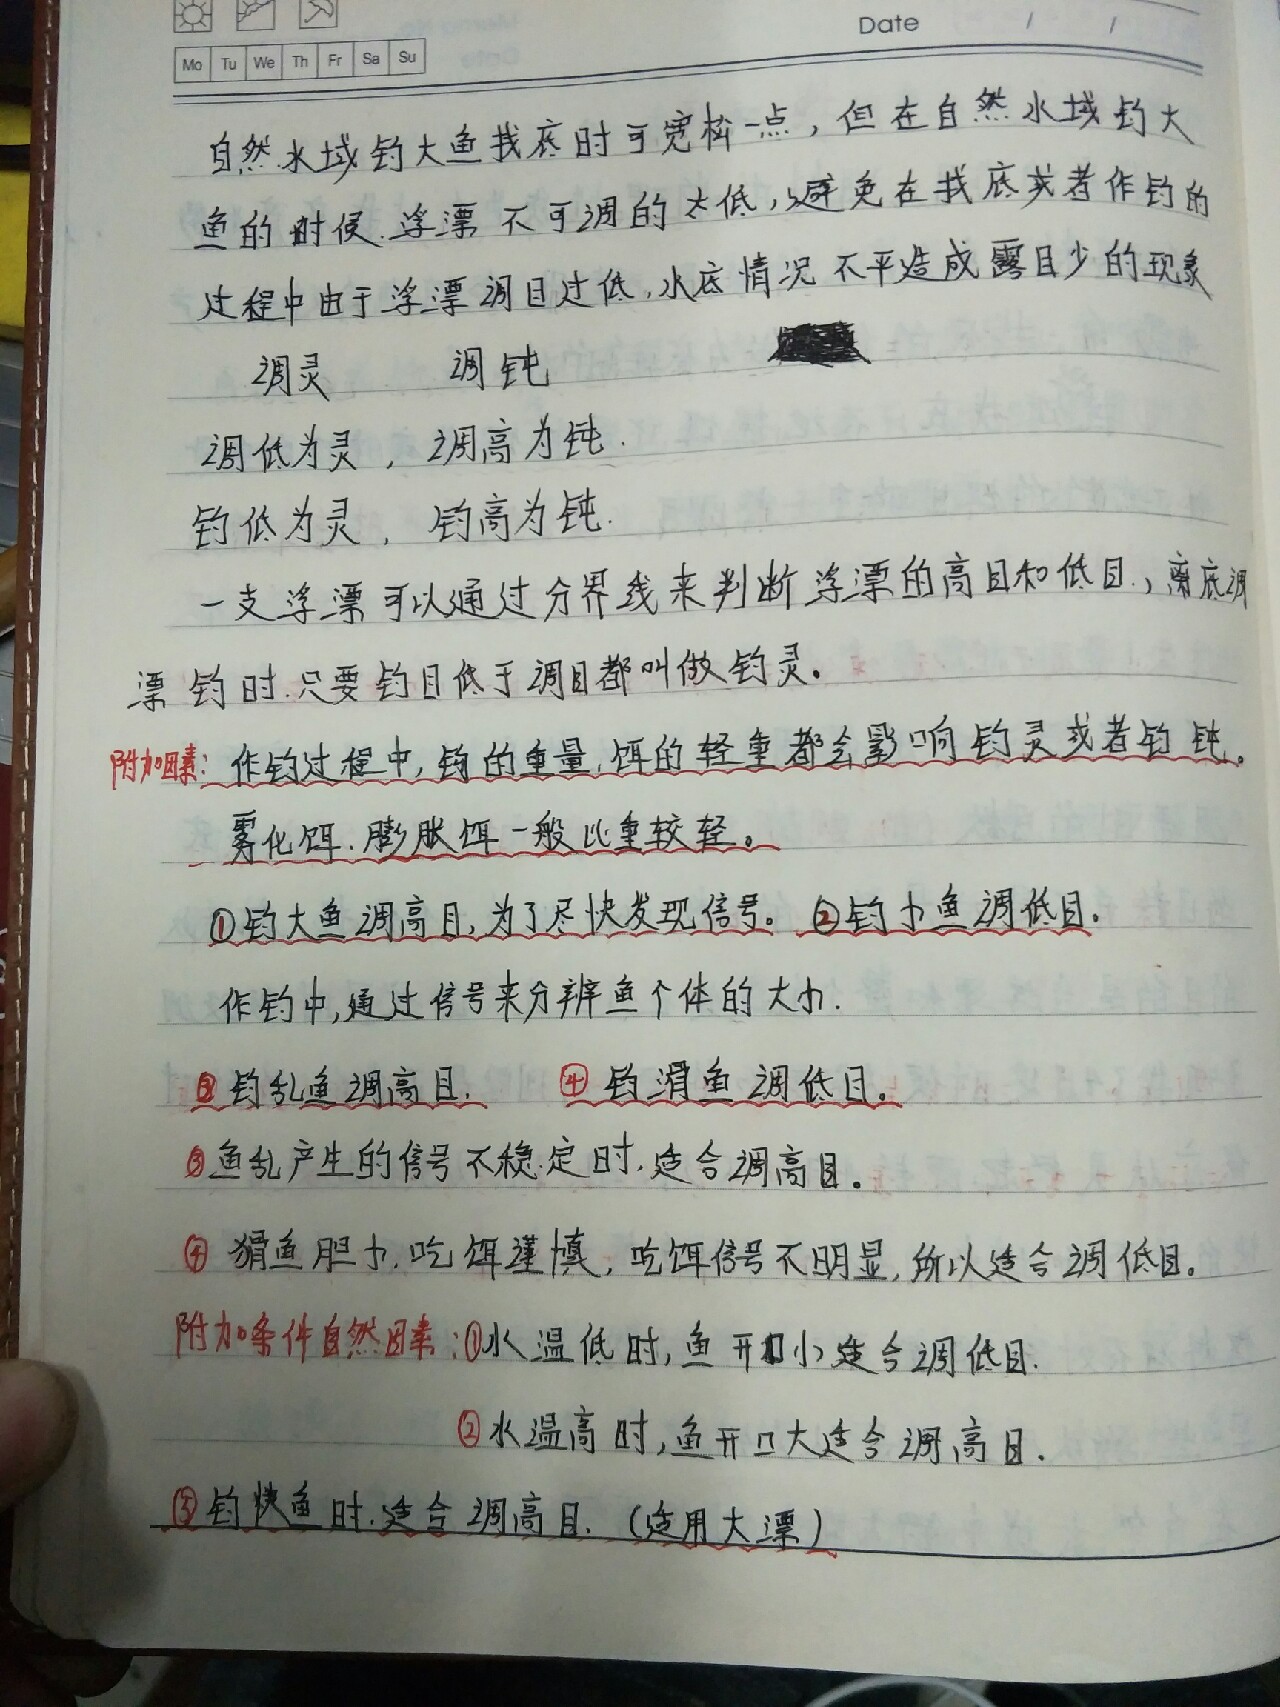 Date / /
Mo Tu We Th Fr Sa Su
自然水域钓大鱼找底时可宽松一点，但在自然水域钓大
鱼的时候.浮漂不可调的太低，避免在找底或者作钓的
过程中由于浮漂调目过低.水底情况不平造成露目少的现象
调灵 调钝
调低为灵，调高为钝.
钓低为灵，钓高为钝.
一支浮漂可以通过分界线来判断浮漂的高目和低目.，离底调
漂钓时.只要钓目低于调目都叫做钓灵。
附加因素：作钓过程中,钩的重量.饵的轻重都会影响钓灵或者钓钝。
雾化饵.膨胀饵一般比重较轻。
①钓大鱼调高目,为了尽快发现信号。②钓小鱼调低目.
作钓中,通过信号来分辨鱼个体的大小.
③钓乱鱼调高目. ④钓滑鱼调低目.
③鱼乱产生的信号不稳定时.适合调高目。
④猾鱼胆小.吃饵谨慎,吃饵信号不明显,所以适合调低目.
附加条件自然因素：①水温低时,鱼开口小适合调低目.
②水温高时,鱼开口大适合调高目.
⑤钓快鱼时.适合调高目.(适用大漂)